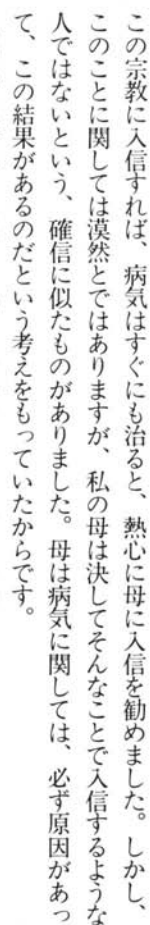 この宗教に入信すれば、病気はすぐにも治ると、熱心に母に入信を勧めました。しかし、
このことに関しては漠然とではありますが、私の母は決してそんなことで入信するような
人ではないという、確信に似たものがありました。母は病気に関しては、必ず原因があっ
て、この結果があるのだという考えをもっていたからです。